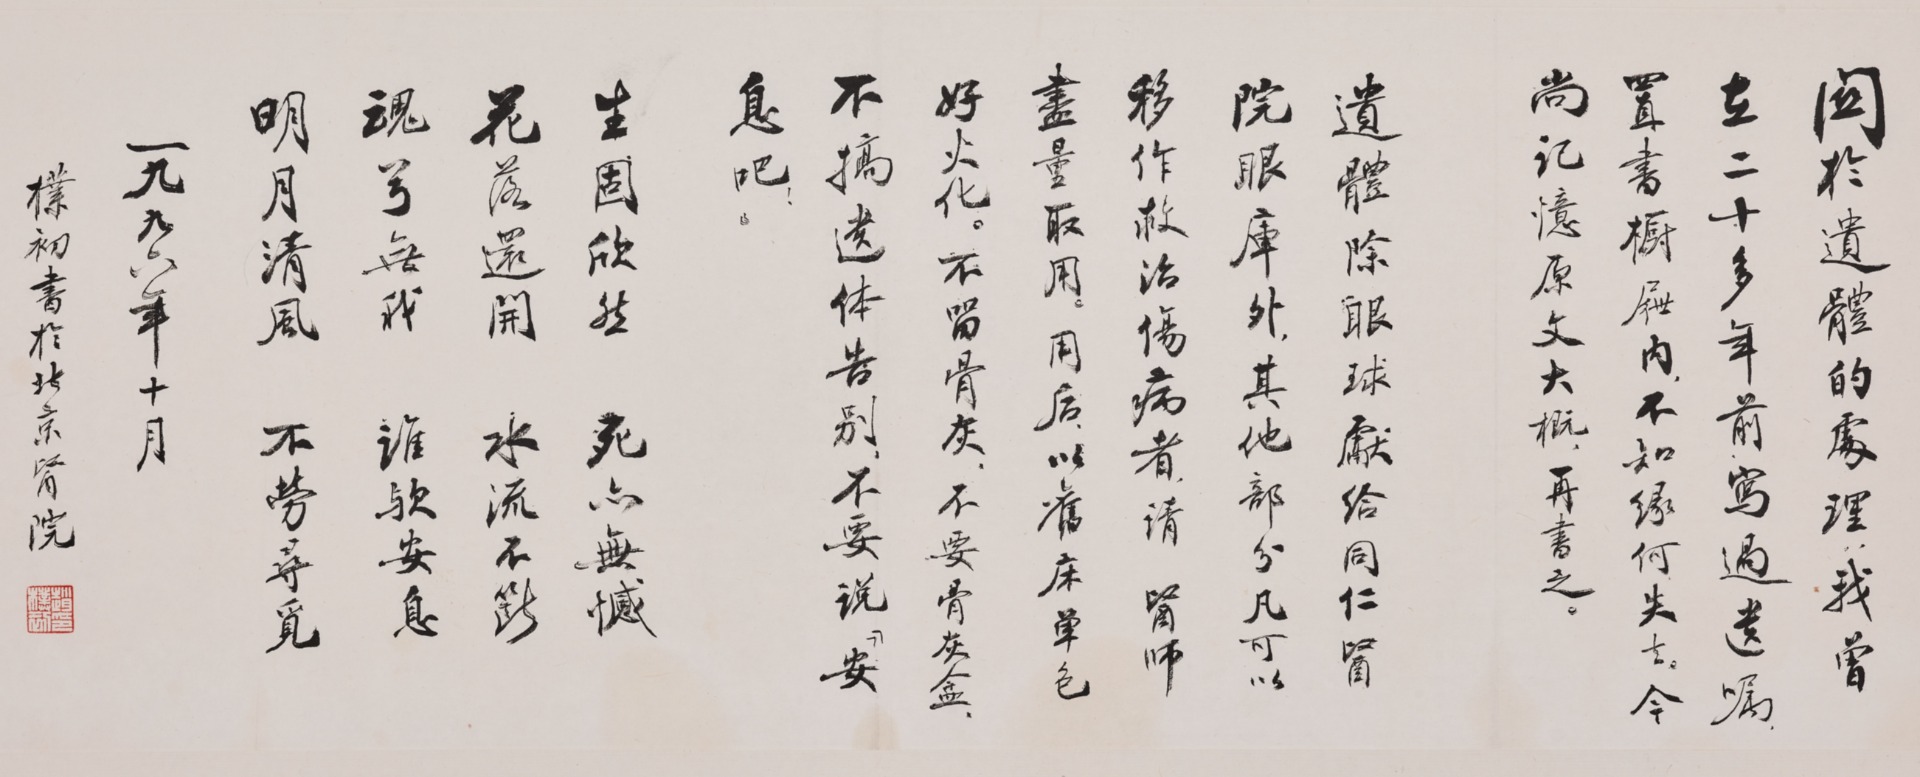 關於遺體的處理，我曾
在二十多年前，寫過遺嘱，
置書櫥屜内，不知緣何失去。今
尚记憶原文大概，再書之。
遺體除眼球獻给同仁醫
院眼庫外，其他部分凡可以
移作救治傷病者，请醫师
盡量取用。用后，以舊床单包
好火化。不留骨灰，不要骨灰盒，
不搞遗体告别，不要说「安
息吧！」
生固欣然　死亦無憾
花落還開　水流不断
魂兮無我　谁歟安息
明月清風　不劳尋覓
一九九六年十月
樸初書於北京醫院
趙樸初